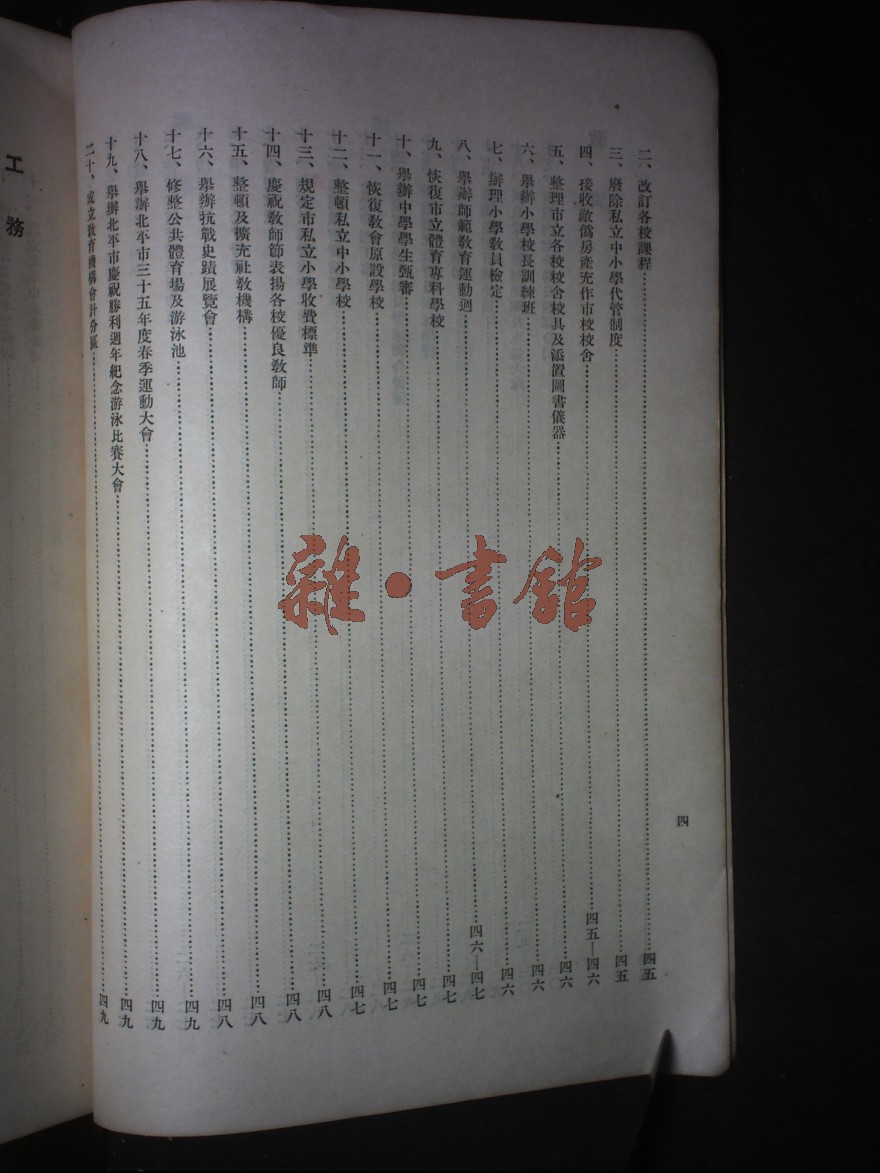 四
二、改訂各校課程四五
三、廢除私立中小學代管制度四五
四、接收敵僞房產充作市校校舍四五—四六
五、整理市立各校校舍校具及添置圖書儀器四六
六、舉辦小學校長訓練班四六
七、辦理小學教員檢定四六
八、舉辦師範教育運動週四六—四七
九、恢復市立體育專科學校四七
十、舉辦中學學生甄審四七
十一、恢復教會原設學校四七
十二、整頓私立中小學校四七
十三、規定市私立小學收費標準四八
十四、慶祝教師節表揚各校優良教師四八
十五、整頓及擴充社教機構四八
十六、舉辦抗戰史蹟展覽會四八
十七、修整公共體育場及游泳池四九
十八、舉辦北平市三十五年度春季運動大會四九
十九、舉辦北平市慶祝勝利週年紀念游泳比賽大會四九
二十、成立教育機構會計分區四九
工務
雜·書館